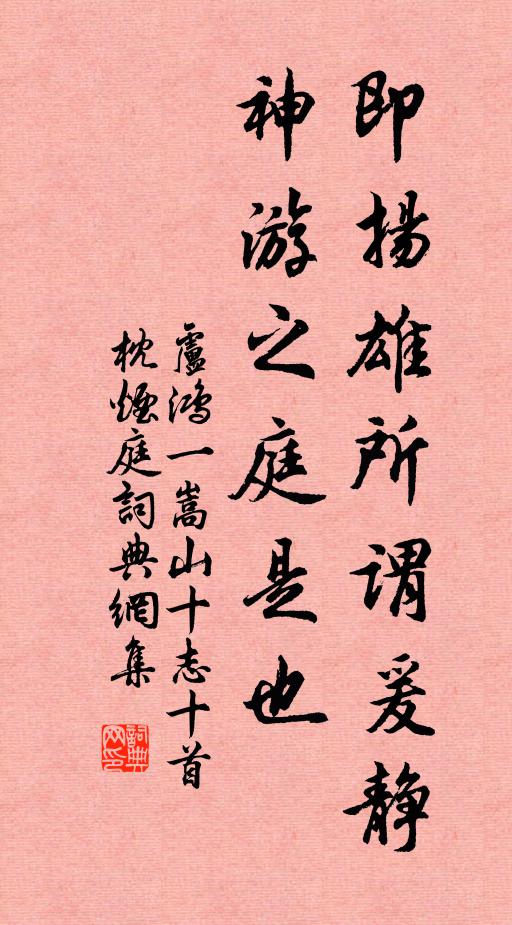 即揚雄所謂爰静
神游之庭是也
盧鴻一嵩山十志十首
枕煙庭詞典網集
詞典
网印